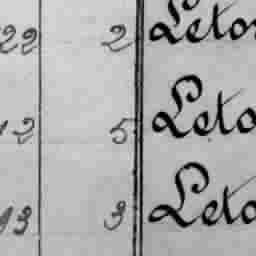 22 2 Leto
12 5 Leto
13 3 Leto